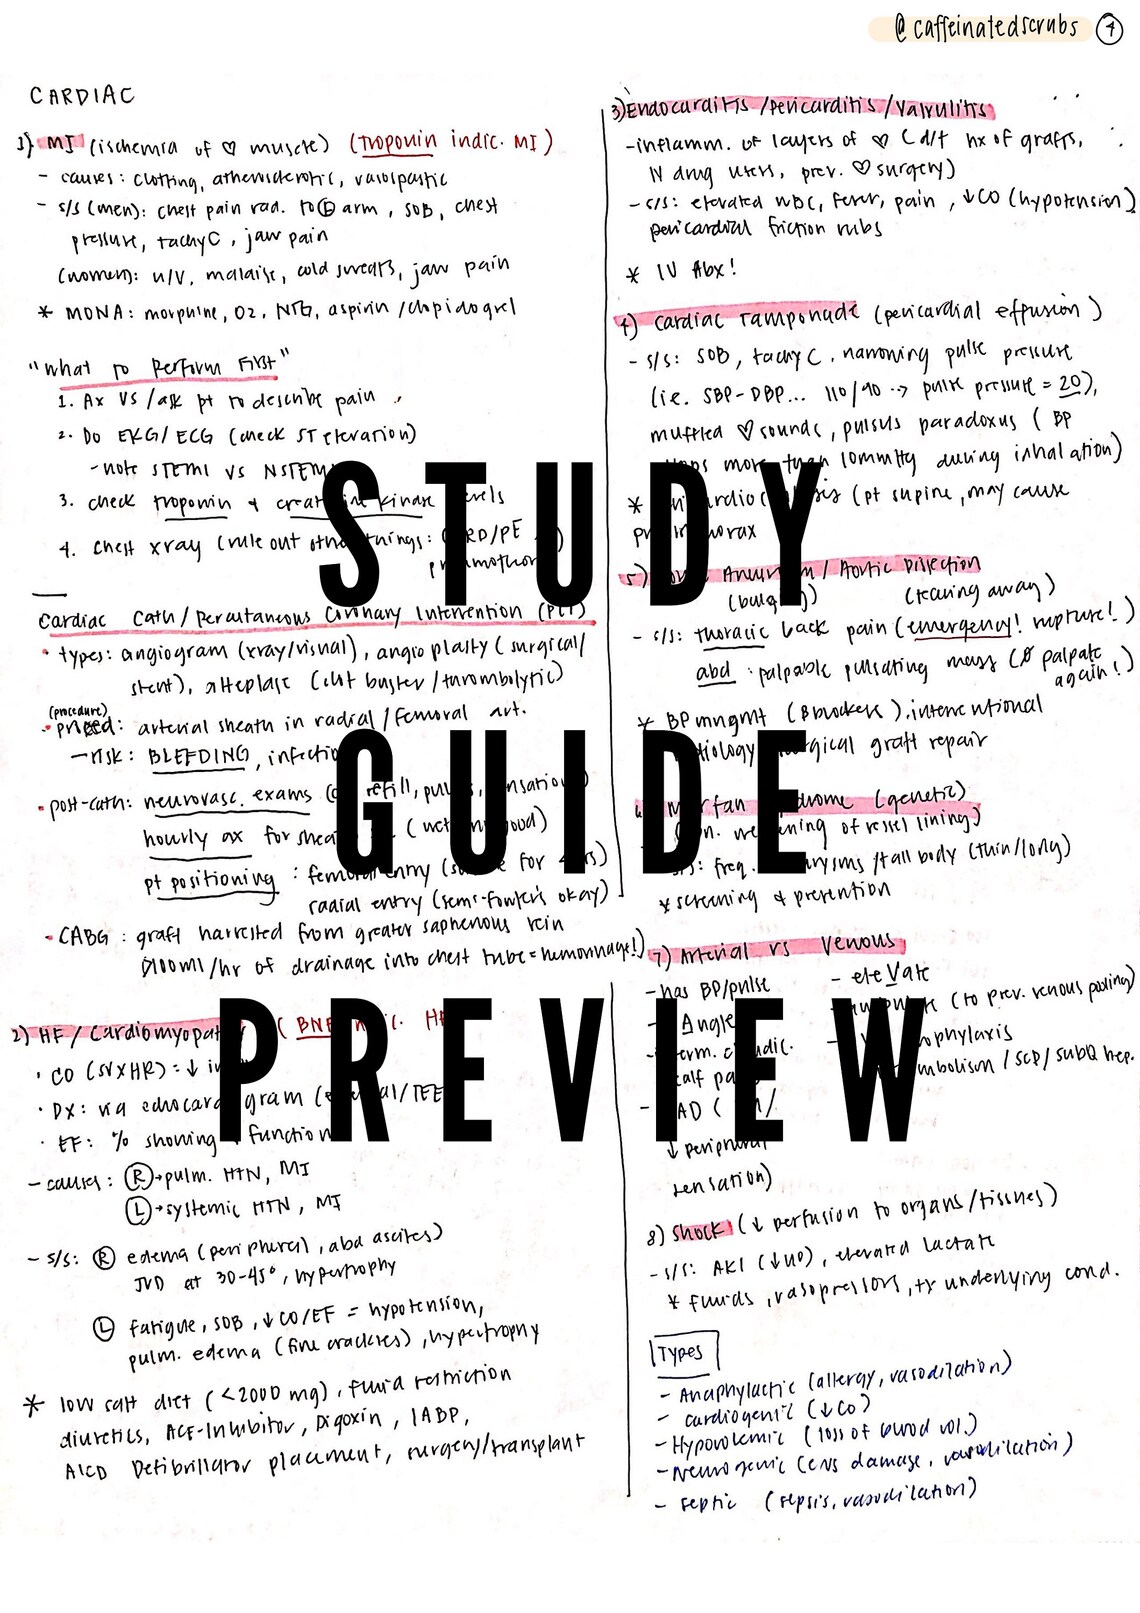 @caffeinatedscrubs 4
CARDIAC
1) MI (ischemia of ♡ muscle) (Troponin indic. MI)
- causes: clotting, atherosclerotic, vasospastic
- s/s (men): chest pain rad. to Ⓛ arm, SOB, chest
pressure, tachyC, jaw pain
(women): n/v, malaise, cold sweats, jaw pain
* MONA: morphine, O2, NTG, aspirin/clopidogrel
"What to Perform First"
1. Ax VS/ask pt to describe pain
2. Do EKG/ECG (check ST elevation)
- note STEMI vs NSTEMI
3. check troponin & creatine kinase levels
4. chest xray (rule out other things:
Cardiac Cath/Percutaneous Coronary Intervention (PCI)
• types: angiogram (xray/visual), angioplasty (surgical/
stent), alteplase (clot buster/thrombolytic)
(procedure)
• proced: arterial sheath in radial/femoral art.
- risk: BLEEDING, infection
• post-cath: neurovasc. exams (cap refill, pulses, sensation)
hourly ax for
pt positioning: femoral entry (supine for
radial entry (semi-fowler's okay)
• CABG: graft harvested from greater saphenous vein
100ml/hr of drainage into chest tube = hemorrhage!)
2) HF/Cardiomyopathy (BNP indic. HF)
• CO (SVXHR): ↓ in
• DX: via echocardiogram (external/TEE)
• EF: % showing function
- causes: Ⓡ→pulm. HTN, MI
Ⓛ→systemic HTN, MI
- s/s: Ⓡ edema (peripheral, abd ascites)
JVD at 30-45°, hypertrophy
Ⓛ fatigue, SOB, ↓CO/EF = hypotension,
pulm. edema (fine crackles), hypertrophy
* low salt diet (<2000 mg), fluid restriction
diuretics, ACE-Inhibitor, Digoxin, IABP,
AICD Defibrillator placement, surgery/transplant
3) Endocarditis/pericarditis/valvulitis
- inflamm. of layers of ♡ (d/t hx of grafts,
IV drug users, prev. ♡ surgery)
- s/s: elevated WBC, fever, pain, ↓CO (hypotension)
pericardial friction rubs
* IV Abx!
4) Cardiac Tamponade (pericardial effusion)
- s/s: SOB, tachyC, narrowing pulse pressure
(i.e. SBP-DBP... 110/90 --> pulse pressure = 20),
muffled ♡ sounds, pulsus paradoxus (BP
drops more than 10mmHg during inhalation)
* pericardiocentesis (pt supine, may cause
pneumothorax
5) Aortic Aneurysm/Aortic Dissection
(bulging) (tearing away)
- s/s: thoracic back pain (emergency! rupture!)
abd: palpable pulsating mass (Ø palpate
again!)
* BP mngmt (B blockers), interventional
radiology, surgical graft repair
6) Marfan Syndrome (genetic)
weakening of vessel lining)
s/s: freq. aneurysms/tall body (thin/long)
* screening & prevention
7) Arterial vs Venous
- has BP/pulse - eleVate
- Angle (to prev. venous pooling)
- interm. claudic. prophylaxis
calf pain embolism/SCD/subQ hep.
- PAD
↓ peripheral
sensation)
8) Shock (↓ perfusion to organs/tissues)
- s/s: AKI (↓UO), elevated lactate
* fluids, vasopressors, tx underlying cond.
Types
- Anaphylactic (allergy, vasodilation)
- Cardiogenic (↓CO)
- Hypovolemic (loss of blood vol.)
- Neurogenic (CNS damage, vasodilation)
- Septic (sepsis, vasodilation)
STUDY
GUIDE
PREVIEW